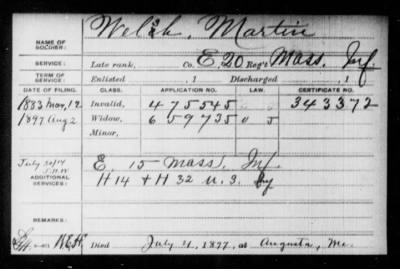 NAME OF SOLDIER: Welsh, Martin
SERVICE: Late rank, Co. E, 20 Reg't Mass. Inf.
TERM OF SERVICE: Enlisted , 1 Discharged , 1
DATE OF FILING. CLASS. APPLICATION NO. LAW. CERTIFICATE NO.
1883 Mar, 12 Invalid, 475545 343372
1897 Aug 2 Widow, 659735 0 5
Minor,
ADDITIONAL SERVICES: E, 15 Mass. Inf.
H 14 + H 32 U. S. Inf
REMARKS:
Died July 4, 1897, at Augusta, Me.